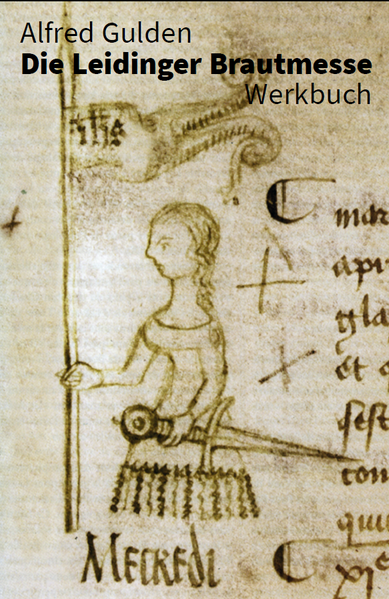 Alfred Gulden
Die Leidinger Brautmesse
Werkbuch
ihs
mar
apr
gla
et
sest
con
Mecredi